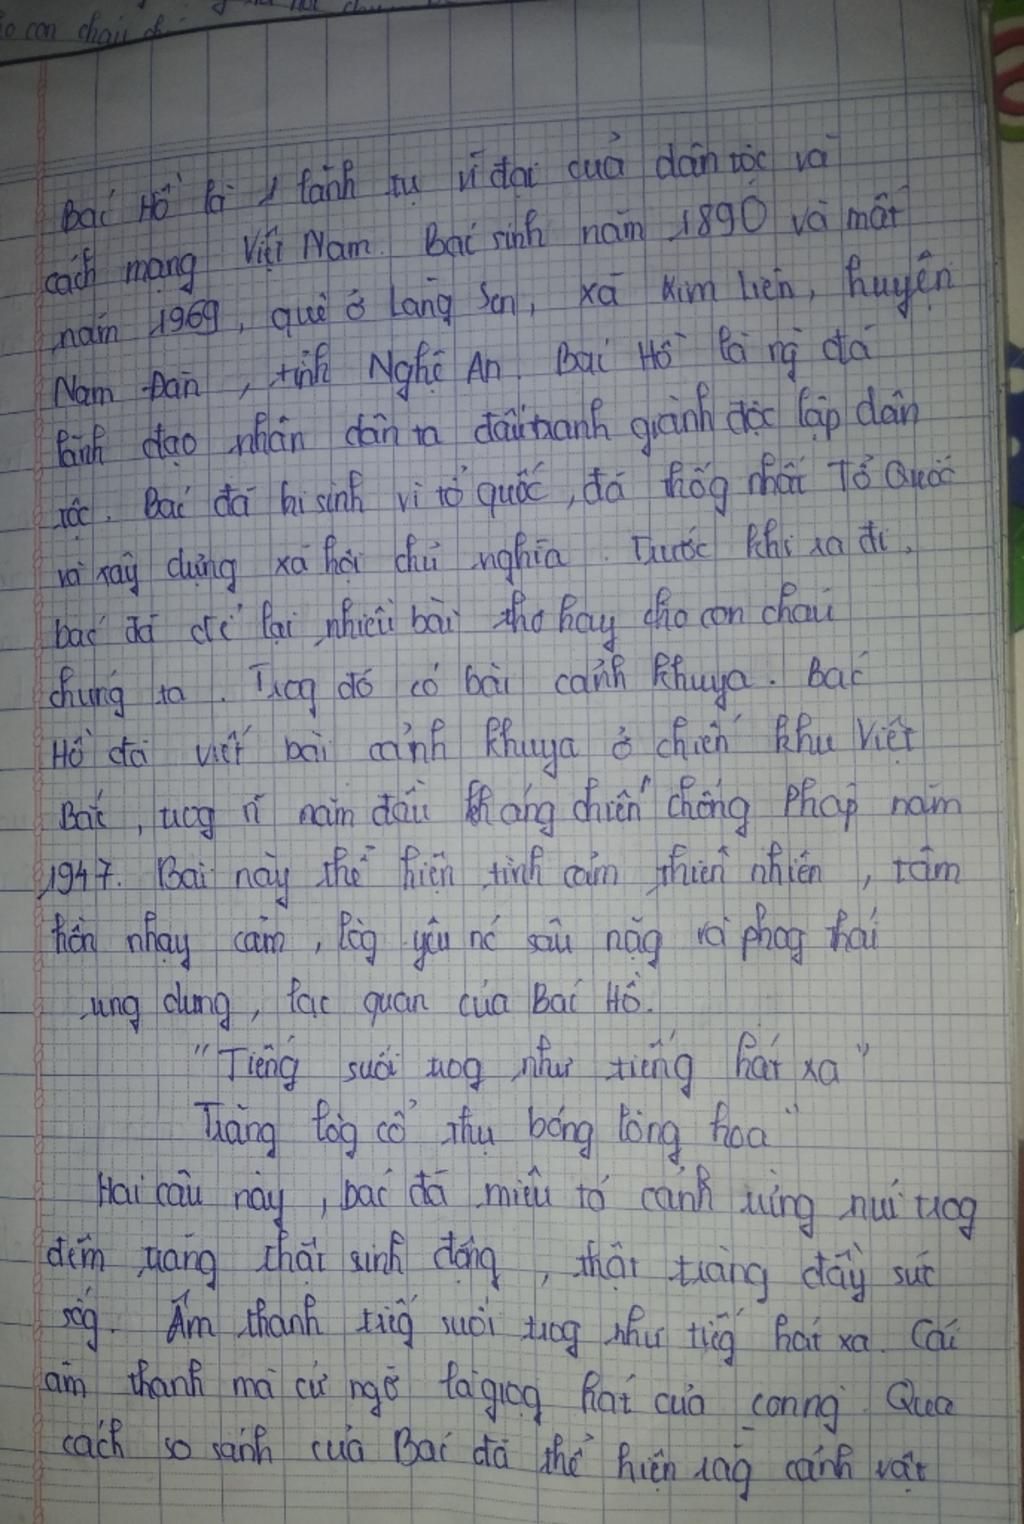 o con cháu ch
Bác Hồ là 1 lãnh tụ vĩ đại của dân tộc và
cách mạng Việt Nam. Bác sinh năm 1890 và mất
năm 1969, quê ở Làng Sen, xã Kim Liên, huyện
Nam Đàn, tỉnh Nghệ An. Bác Hồ là ng đã
lãnh đạo nhân dân ta đấu tranh giành độc lập dân
tộc. Bác đã hi sinh vì tổ quốc, đã thốg nhất Tổ Quốc
và xây dựng xã hội chủ nghĩa. Trước khi xa đi,
bác đã để lại nhiều bài thơ hay cho con cháu
chúng ta. Trog đó có bài cảnh khuya. Bác
Hồ đã viết bài cảnh khuya ở chiến khu Việt
Bắc, trog ñ năm đầu kháng chiến chống Pháp năm
1947. Bài này thể hiện tình cảm thiên nhiên, tâm
hồn nhạy cảm, lòg yêu nc sâu nặg và phog thái
ung dung, lạc quan của Bác Hồ.
"Tiếng suối trog như tiếng hát xa"
Trăng lồg cổ thụ bóng lồng hoa"
Hai câu này, bác đã miêu tả cảnh rừng núi trog
đêm trăng thật sinh động, thật tràng đầy sức
sốg. Âm thanh tiếg suối trog như tiếg hát xa. Cái
âm thanh mà cứ ngỡ là giọg hát của con ng. Qua
cách so sánh của Bác đã thể hiện rằg cảnh vật